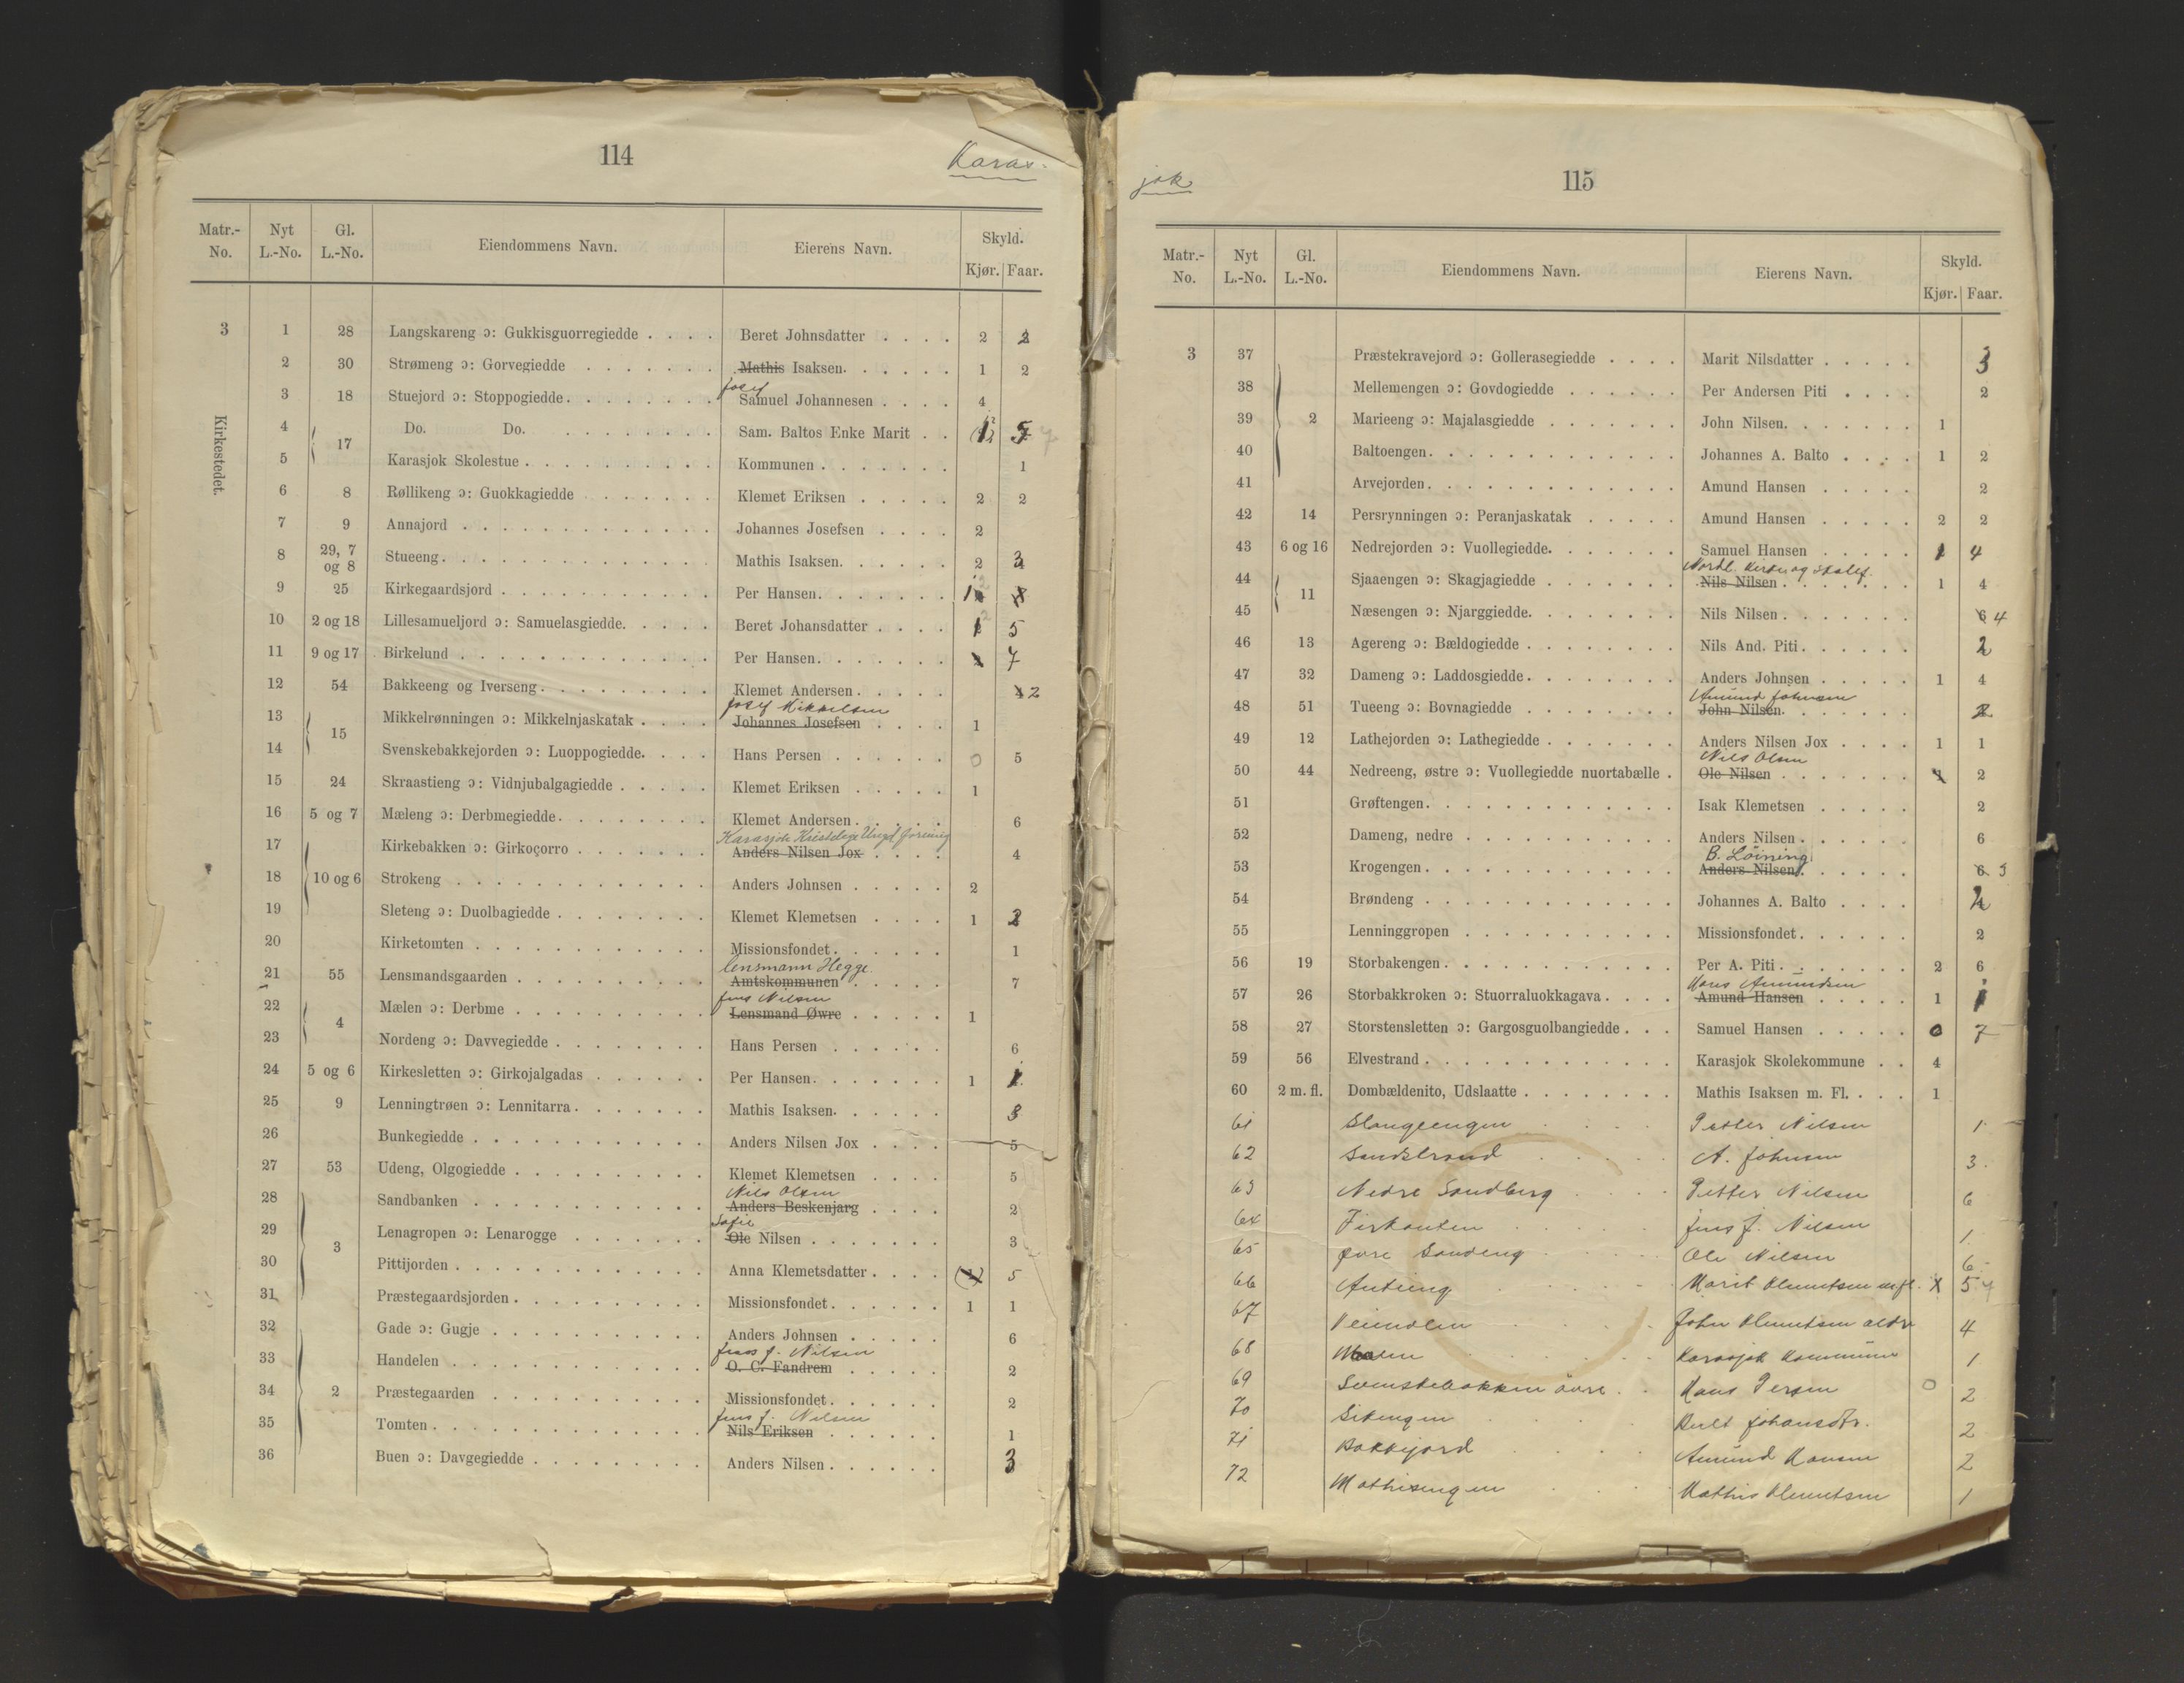 114
Karas-
Matr.-No. Nyt L.-No. Gl. L.-No. Eiendommens Navn. Eierens Navn. Skyld. Kjør. Faar.
Kirkestedet.
3 1 28 Langskareng ɔ: Gukkisguorregiedde . . . . Beret Johnsdatter . . . . 2 2
2 30 Strømeng ɔ: Gorvegiedde . . . . . . . Mathis Isaksen. . . . . . 1 2
Josef
3 18 Stuejord ɔ: Stoppogiedde. . . . . . . . Samuel Johannesen . . . . 4
4 17 Do. Do. . . . . . . . . Sam. Baltos Enke Marit . . 5
5 Karasjok Skolestue . . . . . . . . . . Kommunen . . . . . . . 1
6 8 Røllikeng ɔ: Guokkagiedde . . . . . . . Klemet Eriksen . . . . . 2 2
7 9 Annajord . . . . . . . . . . . . . Johannes Josefsen . . . . 2
8 29, 7 og 8 Stueeng. . . . . . . . . . . . . . Mathis Isaksen. . . . . . 2 3
9 25 Kirkegaardsjord . . . . . . . . . . . Per Hansen. . . . . . . 1
10 2 og 18 Lillesamueljord ɔ: Samuelasgiedde. . . . . Beret Johansdatter . . . . 1 5
11 9 og 17 Birkelund . . . . . . . . . . . . . Per Hansen. . . . . . . 7
12 54 Bakkeeng og Iverseng. . . . . . . . . Klemet Andersen. . . . . 2
Josef Mikkelsen
13 15 Mikkelrønningen ɔ: Mikkelnjaskatak . . . . Johannes Josefsen . . . . 1
14 Svenskebakkejorden ɔ: Luoppogiedde. . . . Hans Persen . . . . . . 0 5
15 24 Skraastieng ɔ: Vidnjubalgagiedde . . . . . Klemet Eriksen . . . . . 1
16 5 og 7 Mæleng ɔ: Derbmegiedde. . . . . . . . Klemet Andersen. . . . . 6
Karasjok Kristelige Ungd. forening
17 Kirkebakken ɔ: Girkoçorro . . . . . . . Anders Nilsen Jox . . . . 4
18 10 og 6 Strokeng . . . . . . . . . . . . . Anders Johnsen . . . . . 2
19 Sleteng ɔ: Duolbagiedde . . . . . . . . Klemet Klemetsen . . . . 1 2
20 Kirketomten . . . . . . . . . . . . Missionsfondet. . . . . . 1
lensmann Hegge.
21 55 Lensmandsgaarden . . . . . . . . . . Amtskommunen . . . . . 7
Jens Nilsen
22 4 Mælen ɔ: Derbme . . . . . . . . . . Lensmand Øwre . . . . . 1
23 Nordeng ɔ: Davvegiedde . . . . . . . . Hans Persen . . . . . . 6
24 5 og 6 Kirkesletten ɔ: Girkojalgadas . . . . . . Per Hansen. . . . . . . 1 1
25 9 Lenningtrøen ɔ: Lennitarra. . . . . . . Mathis Isaksen. . . . . . 3
26 Bunkegiedde . . . . . . . . . . . . Anders Nilsen Jox . . . . 5
27 53 Udeng, Olgogiedde . . . . . . . . . . Klemet Klemetsen . . . . 5
Nils Olsen
28 Sandbanken . . . . . . . . . . . . Anders Beskenjarg . . . . 2
Sofie
29 3 Lenagropen ɔ: Lenarogge . . . . . . . Ole Nilsen . . . . . . . 3
30 Pittijorden . . . . . . . . . . . . . Anna Klemetsdatter . . . . 5
31 Præstegaardsjorden . . . . . . . . . . Missionsfondet. . . . . . 1 1
32 Gade ɔ: Gugje . . . . . . . . . . . Anders Johnsen . . . . . 6
Jens J. Nilsen
33 Handelen . . . . . . . . . . . . . O. C. Fandrem . . . . . 2
34 2 Præstegaarden . . . . . . . . . . . Missionsfondet. . . . . . 2
Jens J. Nilsen
35 Tomten. . . . . . . . . . . . . . . Nils Eriksen . . . . . . 1
36 Buen ɔ: Davgegiedde . . . . . . . . . Anders Nilsen . . . . . . 3
jok
115
Matr.-No. Nyt L.-No. Gl. L.-No. Eiendommens Navn. Eierens Navn. Skyld. Kjør. Faar.
3 37 Præstekravejord ɔ: Gollerasegiedde . . . . Marit Nilsdatter . . . . . 3
38 Mellemengen ɔ: Govdogiedde . . . . . . Per Andersen Piti . . . . 2
39 2 Marieeng ɔ: Majalasgiedde . . . . . . . John Nilsen. . . . . . . 1
40 Baltoengen. . . . . . . . . . . . . Johannes A. Balto . . . . 1 2
41 Arvejorden. . . . . . . . . . . . . Amund Hansen . . . . . 2
42 14 Persrynningen ɔ: Peranjaskatak . . . . . Amund Hansen . . . . . 2 2
43 6 og 16 Nedrejorden ɔ: Vuollegiedde. . . . . . . Samuel Hansen . . . . . 1 4
Nordl. kirke og skolef.
44 11 Sjaaengen ɔ: Skagjagiedde . . . . . . . Nils Nilsen . . . . . . . 1 4
45 Næsengen ɔ: Njarggiedde. . . . . . . . Nils Nilsen . . . . . . . 6 4
46 13 Agereng ɔ: Bældogiedde . . . . . . . . Nils And. Piti . . . . . . 2
47 32 Dameng ɔ: Laddosgiedde. . . . . . . . Anders Johnsen . . . . . 1 4
Amund Johnsen
48 51 Tueeng ɔ: Bovnagiedde . . . . . . . . John Nilsen. . . . . . . 2
49 12 Lathejorden ɔ: Lathegiedde . . . . . . . Anders Nilsen Jox . . . . 1 1
Nils Olsen
50 44 Nedreeng, østre ɔ: Vuollegiedde nuortabælle . Ole Nilsen . . . . . . . 2
51 Grøftengen. . . . . . . . . . . . . Isak Klemetsen . . . . . 2
52 Dameng, nedre . . . . . . . . . . . Anders Nilsen . . . . . . 6
B. Löining
53 Krogengen. . . . . . . . . . . . . Anders Nilsen . . . . . . 6 3
54 Brøndeng . . . . . . . . . . . . . Johannes A. Balto . . . .
55 Lenninggropen . . . . . . . . . . . Missionsfondet. . . . . . 2
56 19 Storbakengen. . . . . . . . . . . . Per A. Piti. . . . . . . 2 6
Hans Amundsen
57 26 Storbakkroken ɔ: Stuorraluokkagava. . . . Amund Hansen . . . . . 1 1
58 27 Storstensletten ɔ: Gargosguolbangiedde . . . Samuel Hansen . . . . . 0 7
59 56 Elvestrand . . . . . . . . . . . . . Karasjok Skolekommune . . 4
60 2 m. fl. Dombældenito, Udslaatte . . . . . . . . Mathis Isaksen m. Fl. . . . 1
61 Slangeengen Petter Nilsen 1
62 Sandstrand A. Johnsen 3
63 Nedre Sandberg Petter Nilsen 6
64 Firkanten Jens J. Nilsen 1
65 Øvre Sandeng Ole Nilsen 6
66 Anteeng Marit Klemetsen m.fl. 5
67 John Klemetsen 4
68 Karasjok Kommune 1
69 Svenskebakken övre Hans Persen 0 2
70 Johansdtr. 2
71 Bakkejord Amund Hansen 2
72 Mathisengen Mathis Klemetsen 1